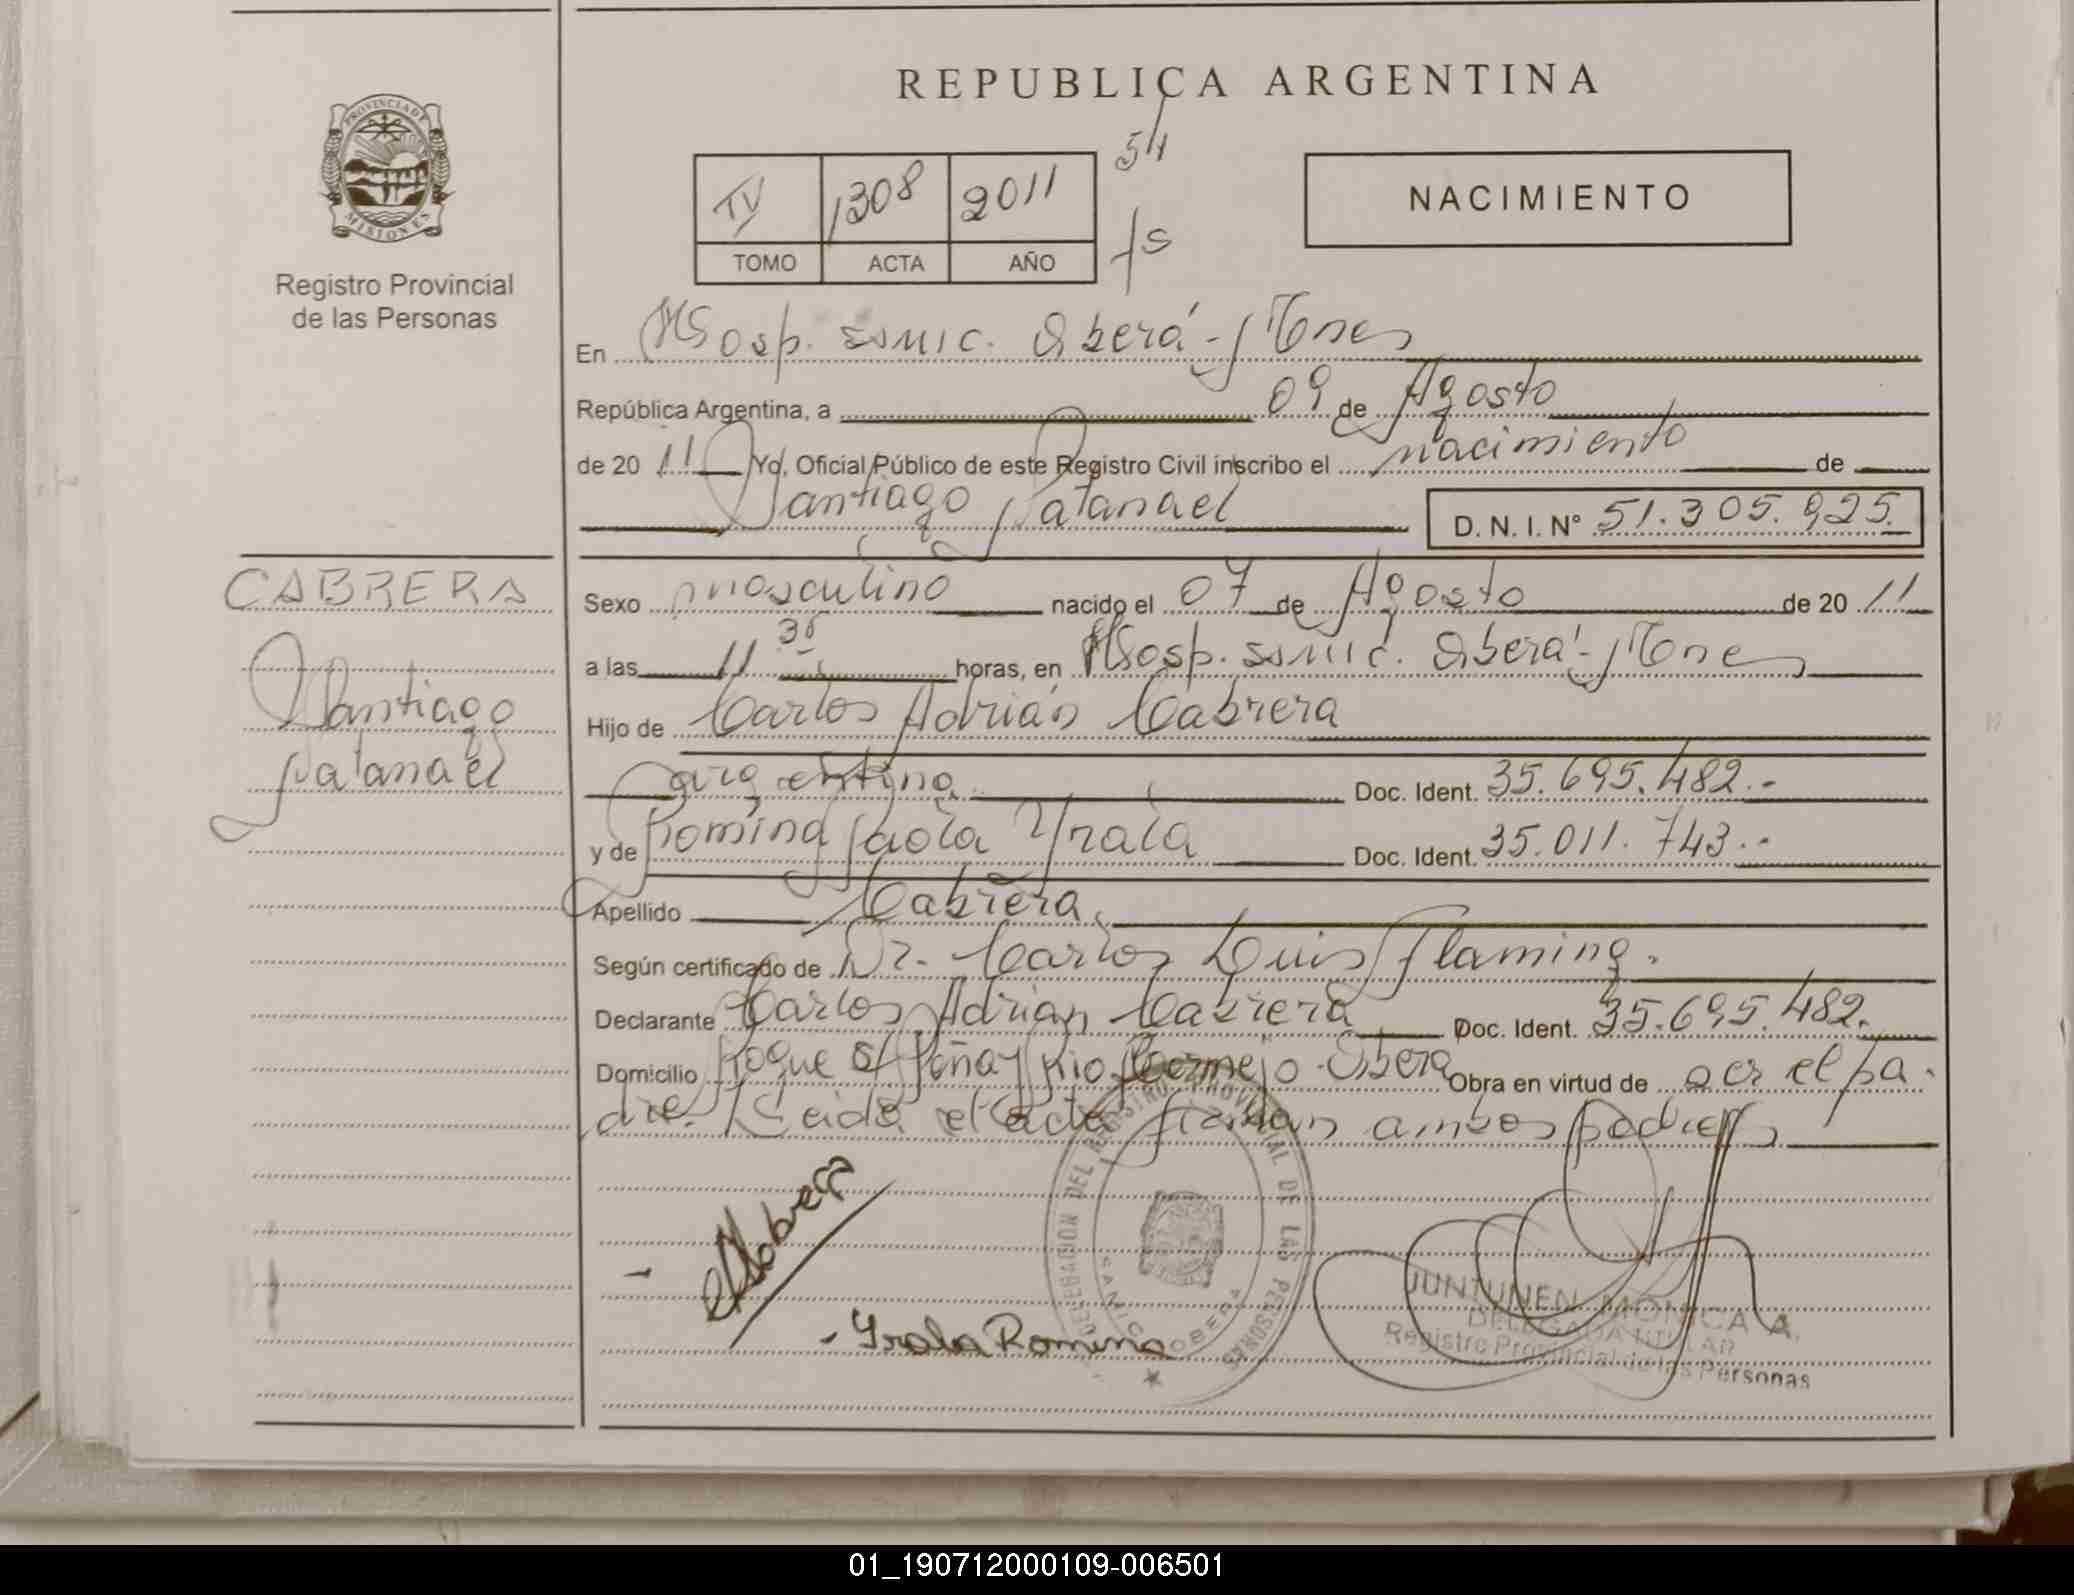 REPUBLICA ARGENTINA
PROVINCIA DE MISIONES
Registro Provincial
de las Personas
54
TV 1308 2011
TOMO ACTA AÑO
fs
NACIMIENTO
En Hosp. samic. Oberá - Mnes
República Argentina, a 09 de Agosto
de 2011 Yo, Oficial Público de este Registro Civil inscribo el nacimiento de
Santiago Natanael
D. N. I. N° 51.305.925.
CABRERA
Santiago
Natanael
Sexo masculino nacido el 07 de Agosto de 2011
a las 11 35 horas, en Hosp. samic. Oberá - Mnes
Hijo de Carlos Adrián Cabrera
argentino Doc. Ident. 35.695.482.-
y de Romina Paola Yrala Doc. Ident. 35.011.743.-
Apellido Cabrera
Según certificado de Dr. Carlos Luis Flaming.
Declarante Carlos Adrian Cabrera Doc. Ident. 35.695.482.
Domicilio Roque S. Peña y Rio Bermejo - Oberá Obra en virtud de ser el pa
dre. Leida el acta firman ambos padres
Cabrera
- Yrala Romina
DELEGACION DEL REGISTRO PROVINCIAL DE LAS PERSONAS
SAMIC OBERA
JUNTUNEN MONICA A.
DELEGADA TITULAR
Registro Provincial de las Personas
01_190712000109-006501